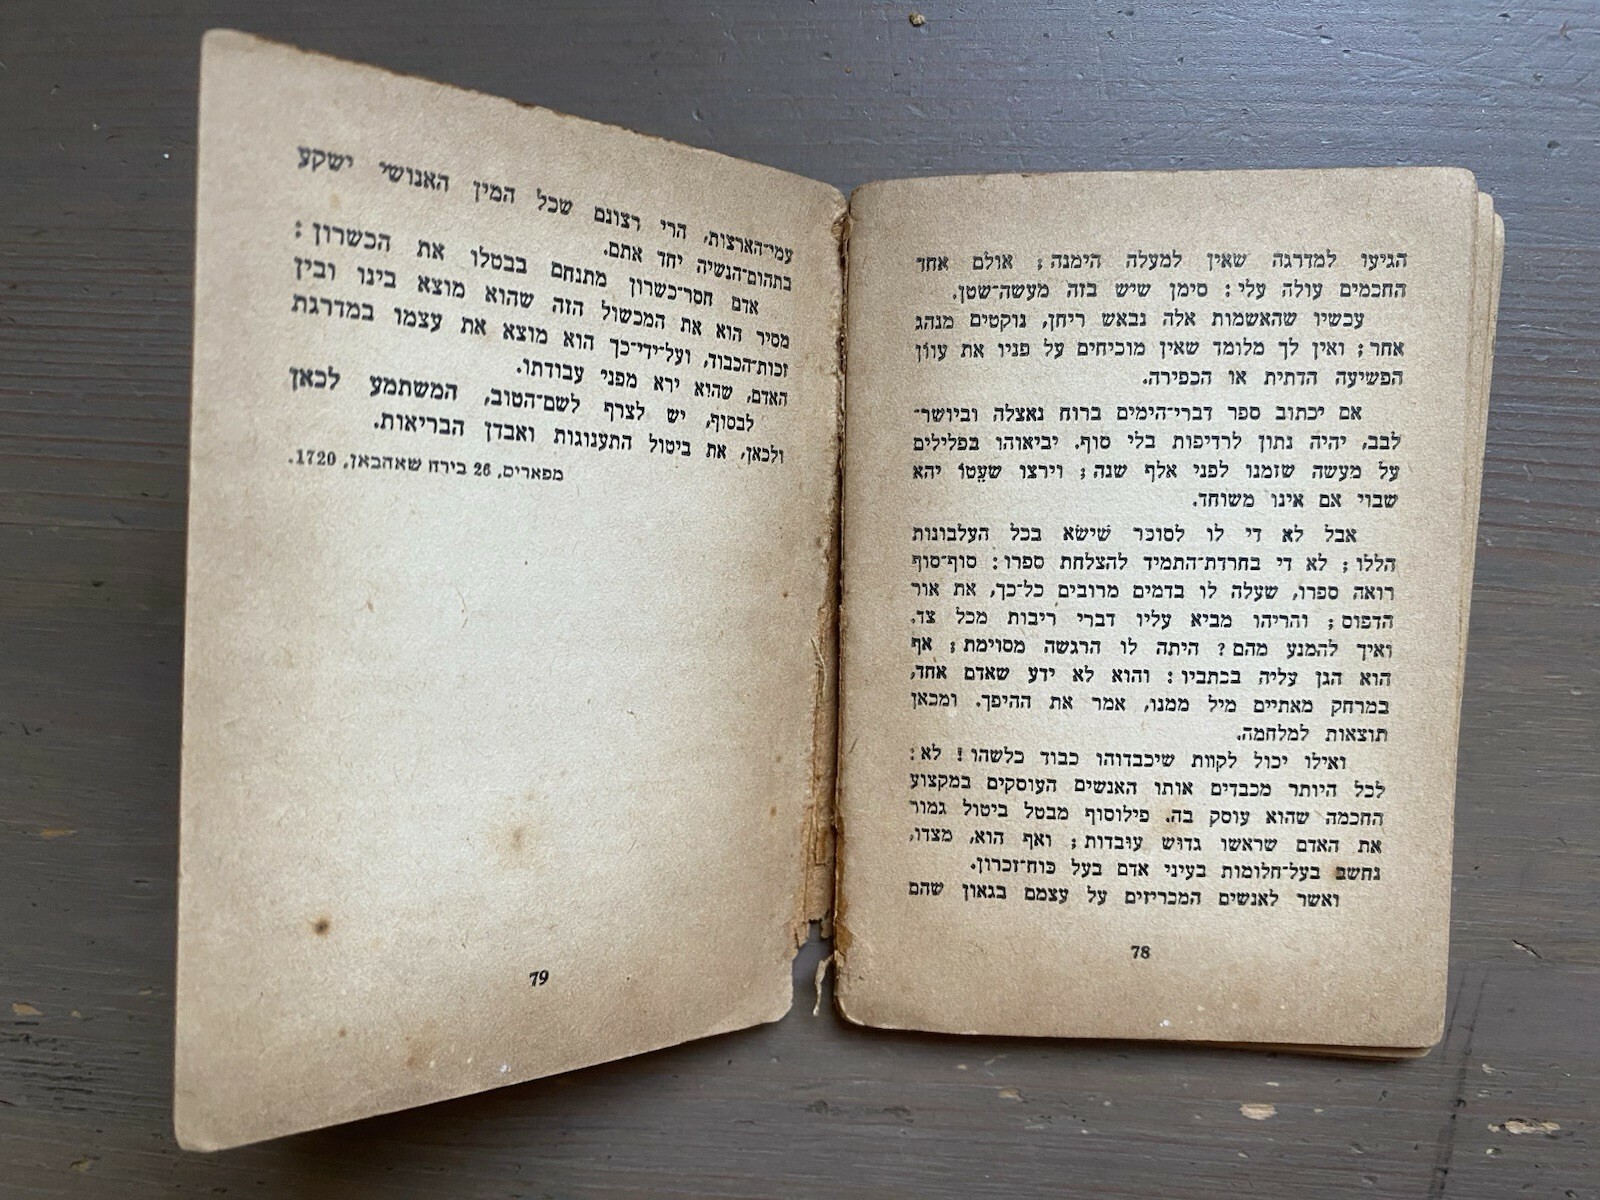 הגיעו למדרגה שאין למעלה הימנה; אולם אחד
החכמים עולה עלי: סימן שיש בזה מעשה־שטן.
עכשיו שהאשמות אלה נבאש ריחן, נוקטים מנהג
אחר; ואין לך מלומד שאין מוכיחים על פניו את עוון
הפשיעה הדתית או הכפירה.
אם יכתוב ספר דברי־הימים ברוח נאצלה וביושר־
לבב, יהיה נתון לרדיפות בלי סוף. יביאוהו בפלילים
על מעשה שזמנו לפני אלף שנה; וירצו שעטו יהא
שבוי אם אינו משוחד.
אבל לא די לו לסופר שישא בכל העלבונות
הללו; לא די בחרדת־התמיד להצלחת ספרו: סוף־סוף
רואה ספרו, שעלה לו בדמים מרובים כל־כך, את אור
הדפוס; והריהו מביא עליו דברי ריבות מכל צד.
ואיך להמנע מהם? היתה לו הרגשה מסוימת; אף
הוא הגן עליה בכתביו: והוא לא ידע שאדם אחד,
במרחק מאתיים מיל ממנו, אמר את ההיפך. ומכאן
תוצאות למלחמה.
ואילו יכול לקוות שיכבדוהו כבוד כלשהו! לא:
לכל היותר מכבדים אותו האנשים העוסקים במקצוע
החכמה שהוא עוסק בה. פילוסוף מבטל ביטול גמור
את האדם שראשו גדוש עובדות; ואף הוא, מצדו,
נחשב בעל־חלומות בעיני אדם בעל כוח־זכרון.
ואשר לאנשים המכריזים על עצמם בגאון שהם
78
עמי־הארצות, הרי רצונם שכל המין האנושי ישקע
בתהום־הנשיה יחד אתם.
אדם חסר־כשרון מתנחם בבטלו את הכשרון:
מסיר הוא את המכשול הזה שהוא מוצא בינו ובין
זכות־הכבוד, ועל־ידי־כך הוא מוצא את עצמו במדרגת
האדם, שהוא ירא מפני עבודתו.
לבסוף, יש לצרף לשם־הטוב, המשתמע לכאן
ולכאן, את ביטול התענוגות ואבדן הבריאות.
מפאריס, 26 בירח שאהבאן, 1720.
79